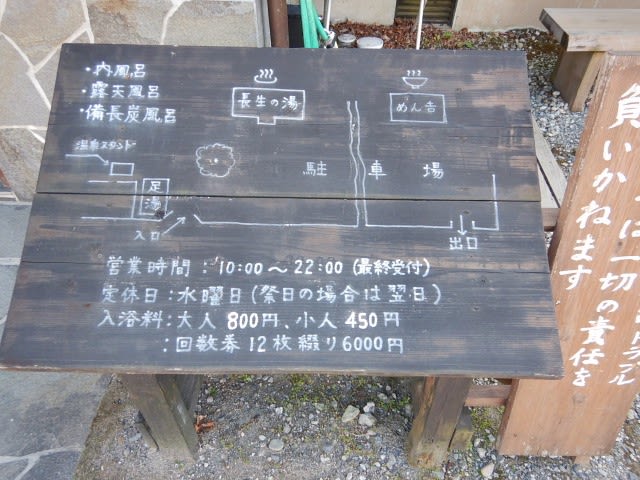 ・内風呂
・露天風呂
・備長炭風呂
長生の湯
めん吉
温泉スタンド
足湯
駐車場
入口
出口
営業時間：10:00〜22:00(最終受付)
定休日：水曜日(祭日の場合は翌日)
入浴料：大人800円、小人450円
：回数券12枚綴り6000円
は一切の責任を
負いかねます